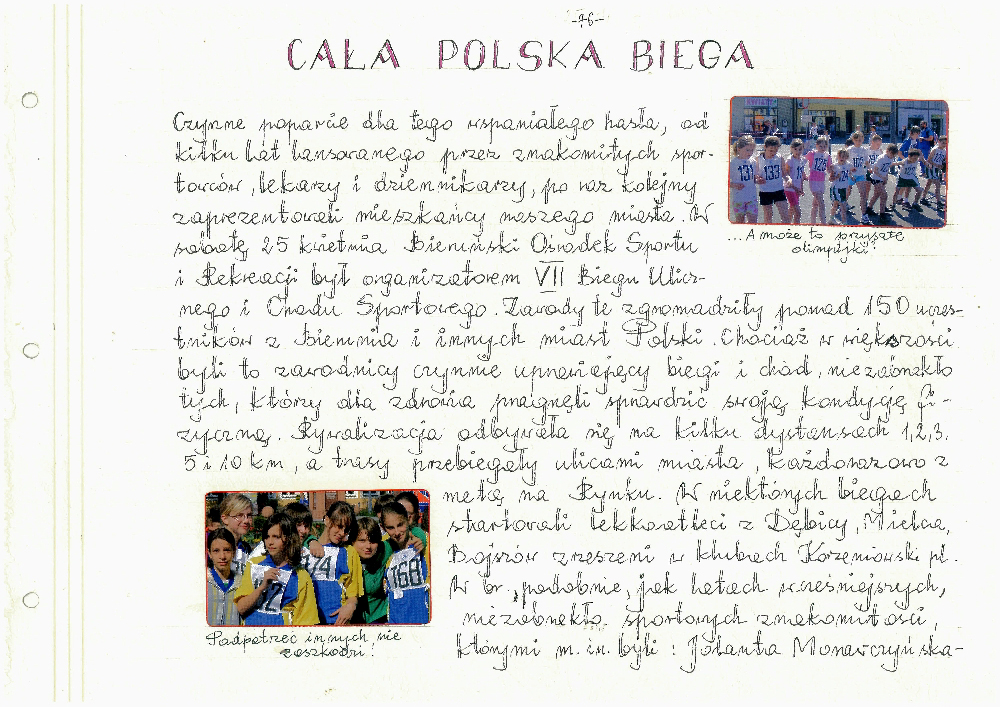 -46-
CAŁA POLSKA BIEGA
Czynne poparcie dla tego wspaniałego hasła, od
kilku lat lansowanego przez znakomitych spor-
towców, lekarzy i dziennikarzy, po raz kolejny
zaprezentowali mieszkańcy naszego miasta. W
sobotę 25 kwietnia Bieruński Ośrodek Sportu
i Rekreacji był organizatorem VII Biegu Ulicz-
nego i Chodu Sportowego. Zawody te zgromadziły ponad 150 uczes-
tników z Bierunia i innych miast Polski. Chociaż w większości
byli to zawodnicy czynnie uprawiający biegi i chód, nie zabrakło
tych, którzy dla zdrowia pragnęli sprawdzić swoją kondycję fi-
zyczną. Rywalizacja odbywała się na kilku dystansach 1,2,3,
5 i 10 km, a trasy przebiegały ulicami miasta, każdorazowo z
metą na Rynku. W niektórych biegach
startowali lekkoatleci z Dębicy, Mielca,
Bojszów zrzeszeni w klubach Korzeniowski pl.
W br., podobnie, jak latach wcześniejszych,
nie zabrakło sportowych znakomitości,
którymi m.in. byli: Jolanta Monarczyńska-
...A może to przyszłe
olimpijki?
131
133
128
Podpatrzeć innych nie
zaszkodzi!
12
174
168